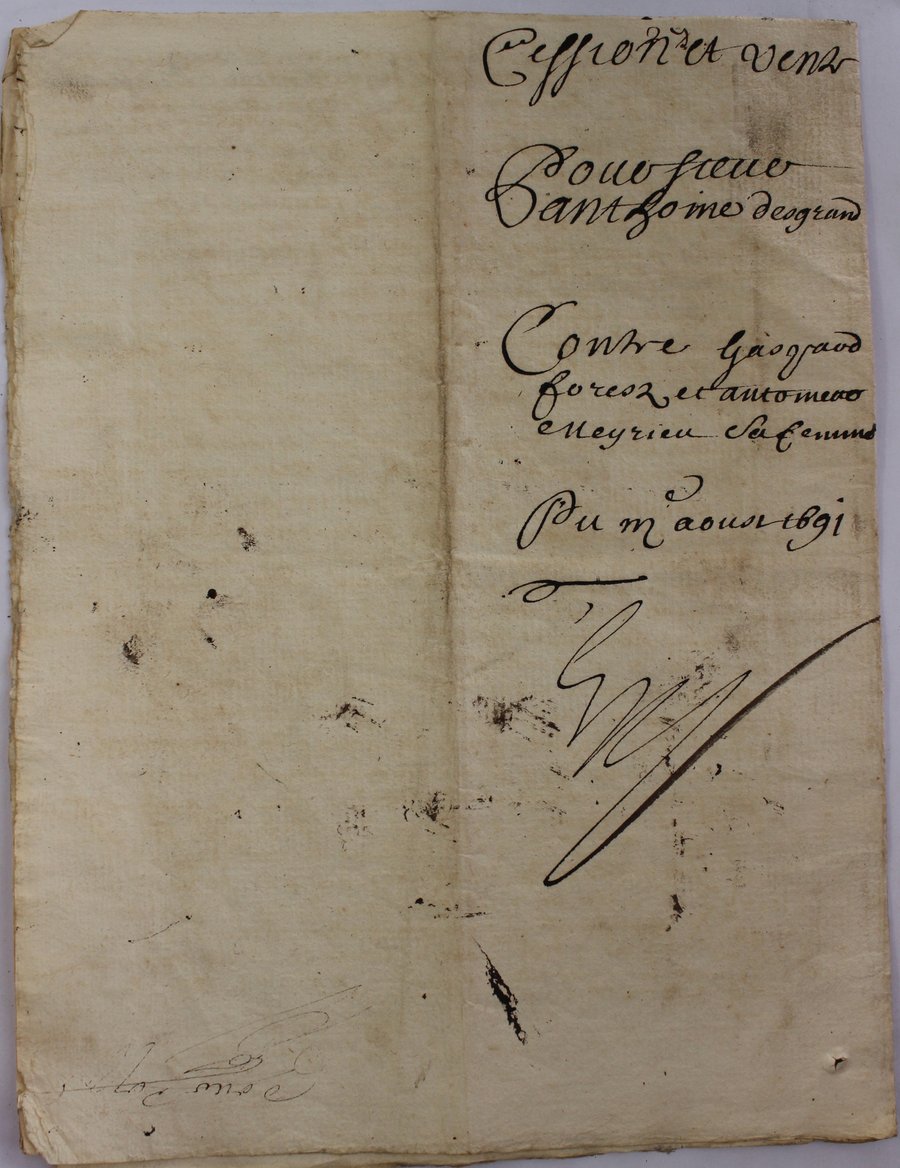 Cession et vente
Pour sieur
Anthoine desgrand
Contre Gaspard
forest et antoinette
Meyrieu sa femme
Du m^e aoust 1691
Pour